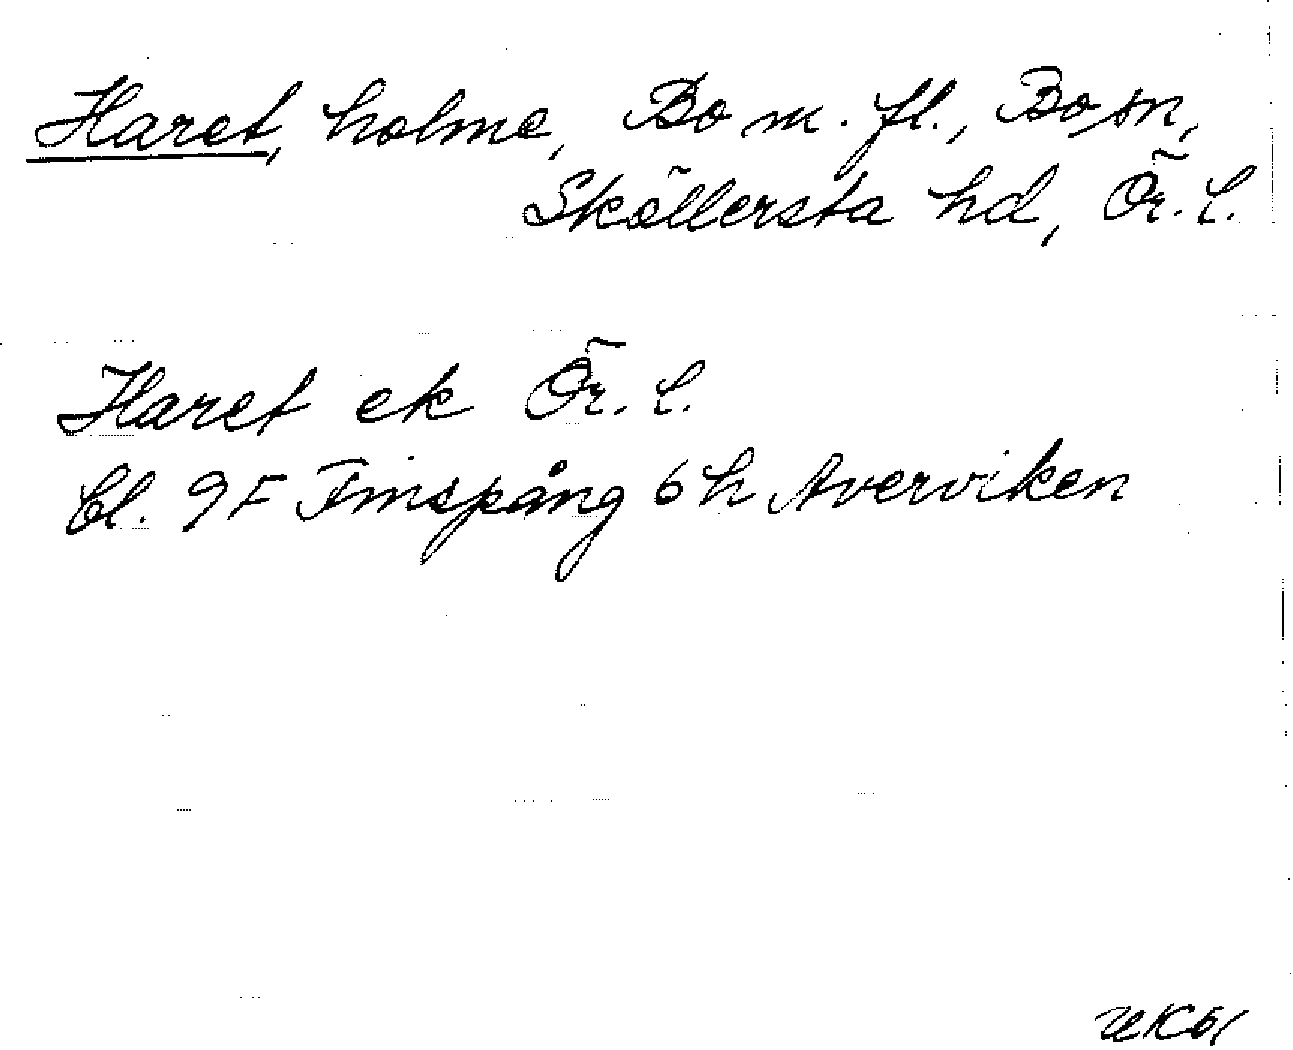 Haret, holme, Bo m. fl., Bo sn,
Sköllersta hd, Ör. l.
Haret ek Ör. l.
bl. 9F Finspång 6h Averviken